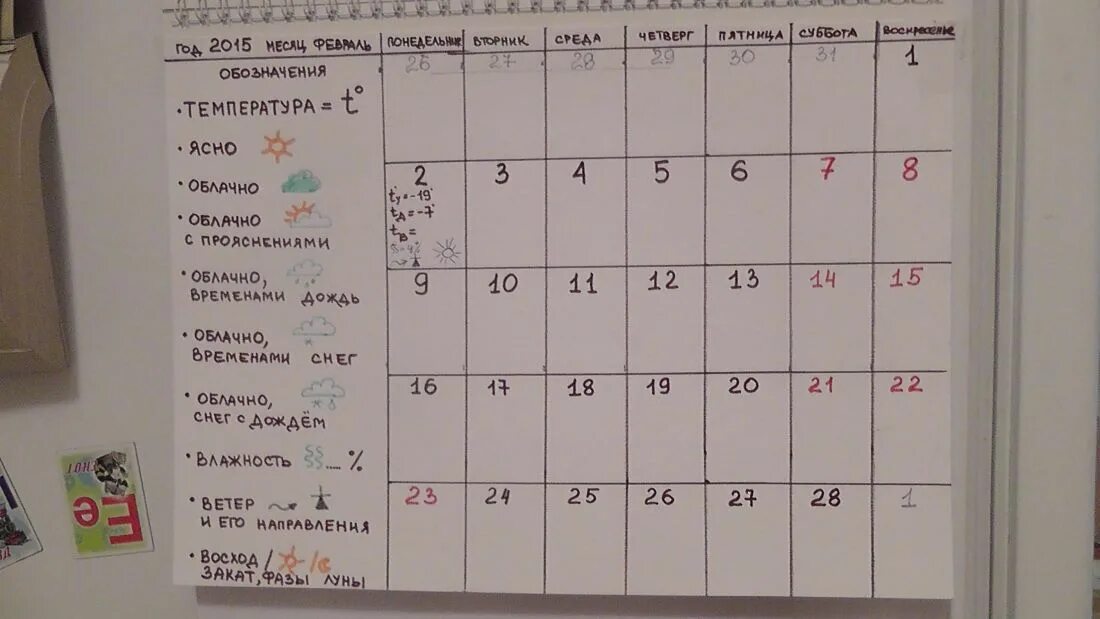 год 2015 месяц февраль
понедельник вторник среда четверг пятница суббота воскресенье
26 27 28 29 30 31 1
обозначения
• температура = t°
• ясно
• облачно
• облачно
с прояснениями
• облачно,
временами дождь
• облачно,
временами снег
• облачно,
снег с дождём
• влажность .... %
• ветер
и его направления
• восход /
закат, фазы луны
2 3 4 5 6 7 8
tу = -19°
tд = -7°
tв =
9 10 11 12 13 14 15
16 17 18 19 20 21 22
23 24 25 26 27 28 1
Ее